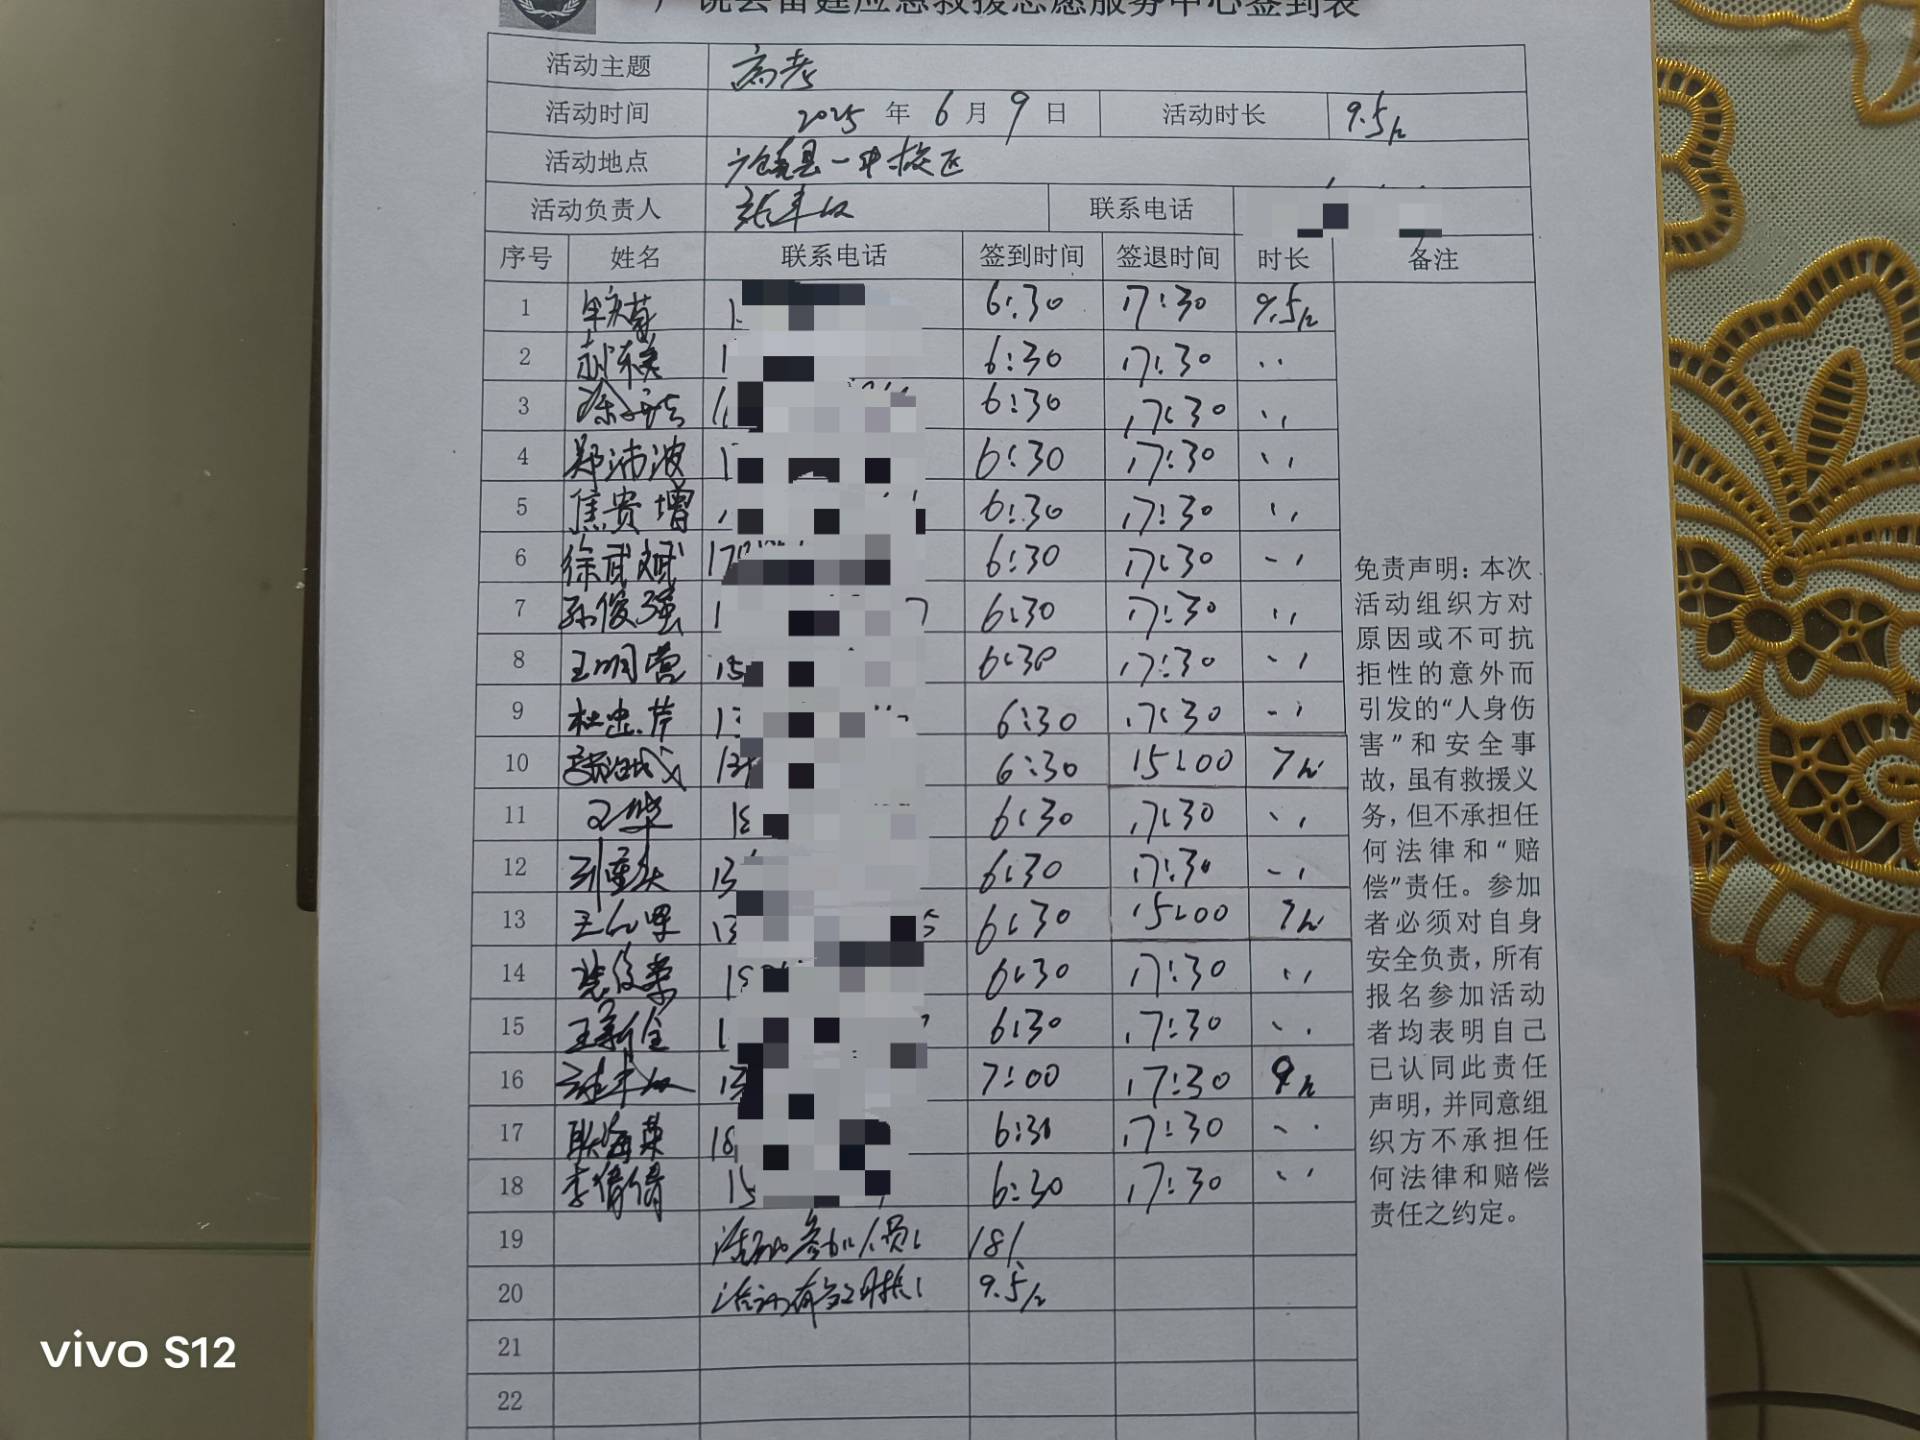 广饶县雷建应急救援志愿服务中心签到表
活动主题 高考
活动时间 2025 年 6 月 9 日 活动时长 9.5h
活动地点 广饶县一中校区
活动负责人 联系电话
序号 姓名 联系电话 签到时间 签退时间 时长 备注
1 1 6:30 17:30 9.5h
2 1 6:30 17:30 〃
3 6:30 17:30 〃
4 郑沛波 1 6:30 17:30 〃
5 焦贵增 6:30 17:30 〃
6 徐武斌 17 6:30 17:30 〃
7 孙俊强 1 7 6:30 17:30 〃
8 王明营 15 6:30 17:30 〃
9 杜忠芹 13 6:30 17:30 〃
10 13 6:30 15:00 7h
11 18 6:30 17:30 〃
12 13 6:30 17:30 〃
13 13 5 6:30 15:00 7h
14 15 6:30 17:30 〃
15 王新全 1 6:30 17:30 〃
16 13 7:00 17:30 9h
17 耿海荣 18 6:30 17:30 〃
18 李倩倩 15 6:30 17:30 〃
19 活动参加人员: 18人
20 活动有效时长: 9.5h
21
22
免责声明：本次
活动组织方对
原因或不可抗
拒性的意外而
引发的“人身伤
害”和安全事
故，虽有救援义
务，但不承担任
何法律和“赔
偿”责任。参加
者必须对自身
安全负责，所有
报名参加活动
者均表明自己
已认同此责任
声明，并同意组
织方不承担任
何法律和赔偿
责任之约定。
vivo S12